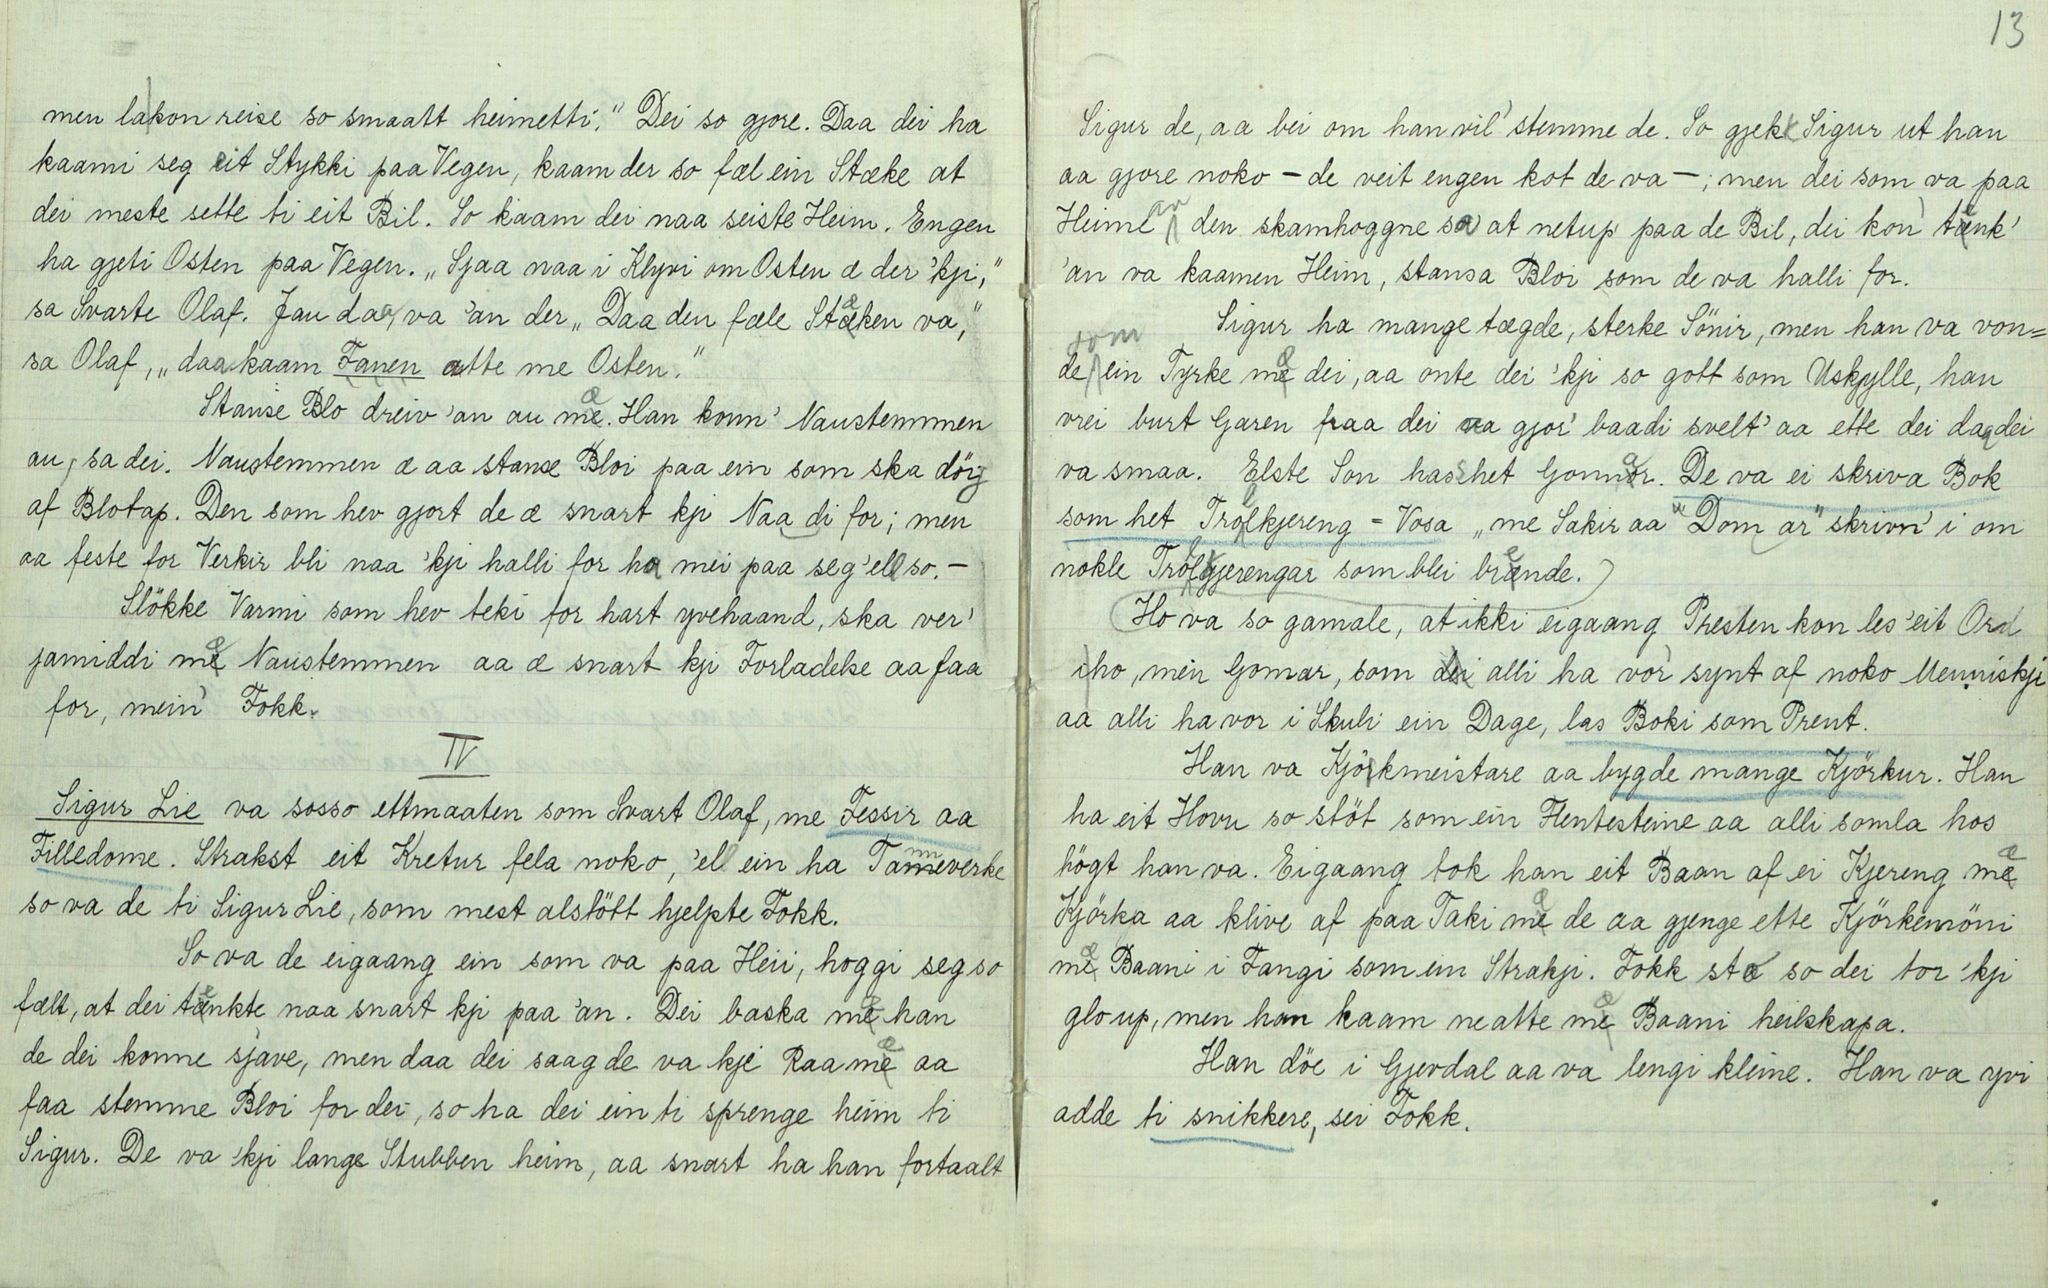 men lakon reise so smaatt heimetti." Dei so gjore. Daa dei ha
kaami seg eit Stykki paa Vegen, kaam der so fæl ein Stæke at
dei meste sette ti eit Bil. So kaam dei naa seiste Heim. Engen
ha gjeti Osten paa Vegen. „Sjaa naa i Klyvi om Osten æ der 'kji,"
sa Svarte Olaf. Jau daa, va 'an der „Daa den fæle Stæken va,"
sa Olaf, „daa kaam Fanen atte me Osten."
Stanse Blo dreiv 'an au mæ. Han konn' Naustemmen
au, sa dei. Naustemmen æ aa stanse Bloi paa ein som ska döy
af Blotap. Den som hev gjort de æ snart kji Naadi for; men
aa feste for Verkir bli naa 'kji halli for ha mei paa seg 'ell so. –
Slökke Varmi som hev teki for hart yvehaand, ska ver'
jamiddi mæ Naustemmen aa æ snart kji Forladelse aa faa
for, mein' Fokk.
IV
Sigur Lie va sosso ettmaaten som Svart Olaf, me Fessir aa
Filledome. Strakst eit Kretur fela noko, 'el ein ha Tanneverke
so va de ti Sigur Lie, som mest alstött hjelpte Fokk.
So va de eigaang ein som va paa Heii, hoggi seg so
fælt, at dei tænkte naa snart kji paa 'an. Dei baska mæ han
de dei konne sjave, men daa dei saag de va kje Raa mæ aa
faa stemme Bloi for dei, so ha dei ein ti sprenge heim ti
Sigur. De va 'kji lange Stubben heim, aa snart ha han fortaalt
13
Sigur de, aa bei om han vil' stemme de. So gjekk Sigur ut han
aa gjore noko – de veit engen kot de va –; men dei som va paa
Heime av den skamhoggne sa at netup paa de Bil, dei kon' tænk'
'an va kaamen Heim, stansa Bloi som de va halli for.
Sigur ha mange tægde, sterke Sönir, men han va von=
de som ein Tyrke mæ dei, aa onte dei 'kji so gott som Uskylle, han
vrei burt Garen fraa dei aa gjor' baadi svelt' aa ette dei daa dei
va smaa. Elste Son hass het Gonnar. De va ei skriva Bok
som het Trollkjereng = Vosa „me Sakir aa "Dom ar" skrivn' i om
nokle Trollkjerengar som blei brænde.
Ho va so gamale, at ikki eigaang Presten kon les' eit Ord
i ho, men Gonnar, som alli ha vor' synt af noko Menniskji
aa alli ha vor i Skuli ein Dage, las Boki som Prent.
Han va Kjörkmeistare aa bygde mange Kjörkur. Han
ha eit Hovu so stöt som ein Flentesteine aa alli somla hos
högt han va. Eigaang tok han eit Baan af ei Kjereng mæ
Kjörka aa klive af paa Taki mæ de aa gjenge ette Kjörkemöni
mæ Baani i Fangi som ein Strakji. Fokk sto so dei tor 'kji
glo up, men han kaam ne atte mæ Baani heilskapa.
Han döe i Gjevdal aa va lengi kleine. Han va yvi
adde ti snikkere, sei Fokk.